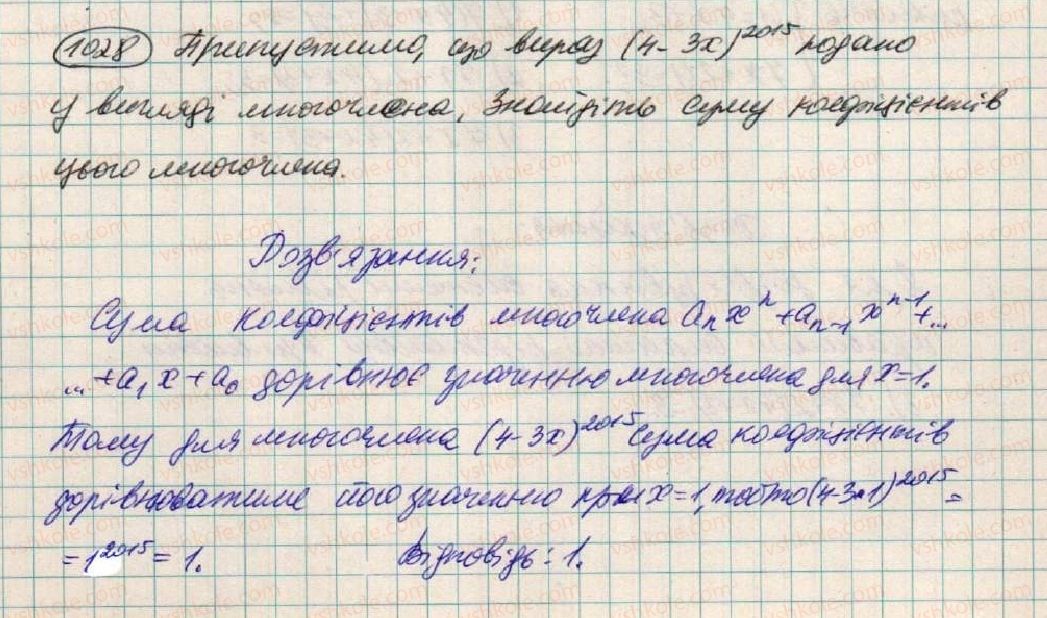 1028 Припустимо, що вираз (4-3x)^2015 подано
у вигляді многочлена, Знайдіть суму коефіцієнтів
цього многочлена.
Розв'язання:
Сума коефіцієнтів многочлена aₙxⁿ+aₙ₋₁xⁿ⁻¹+...
...+a₁x+a₀ дорівнює значенню многочлена для x=1.
Тому для многочлена (4-3x)^2015 сума коефіцієнтів
дорівнюватиме його значенню при x=1, тобто (4-3·1)^2015=
=1^2015=1. Відповідь: 1.